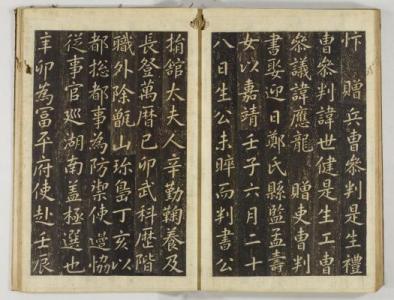 忭 贈兵曹參判是生禮
曹參判諱世健是生工曹
參議諱應龍 贈吏曹判
書娶迎日鄭氏縣監孟壽
女以嘉靖壬子六月二十
八日生公未晬而判書公
捐舘大夫人辛勤鞠養及
長登萬曆己卯武科歷階
職外除甑山珎島丁亥以
都摠都事為防禦使邊協
從事官巡湖南盖極選也
辛卯為冨平府使赴壬辰